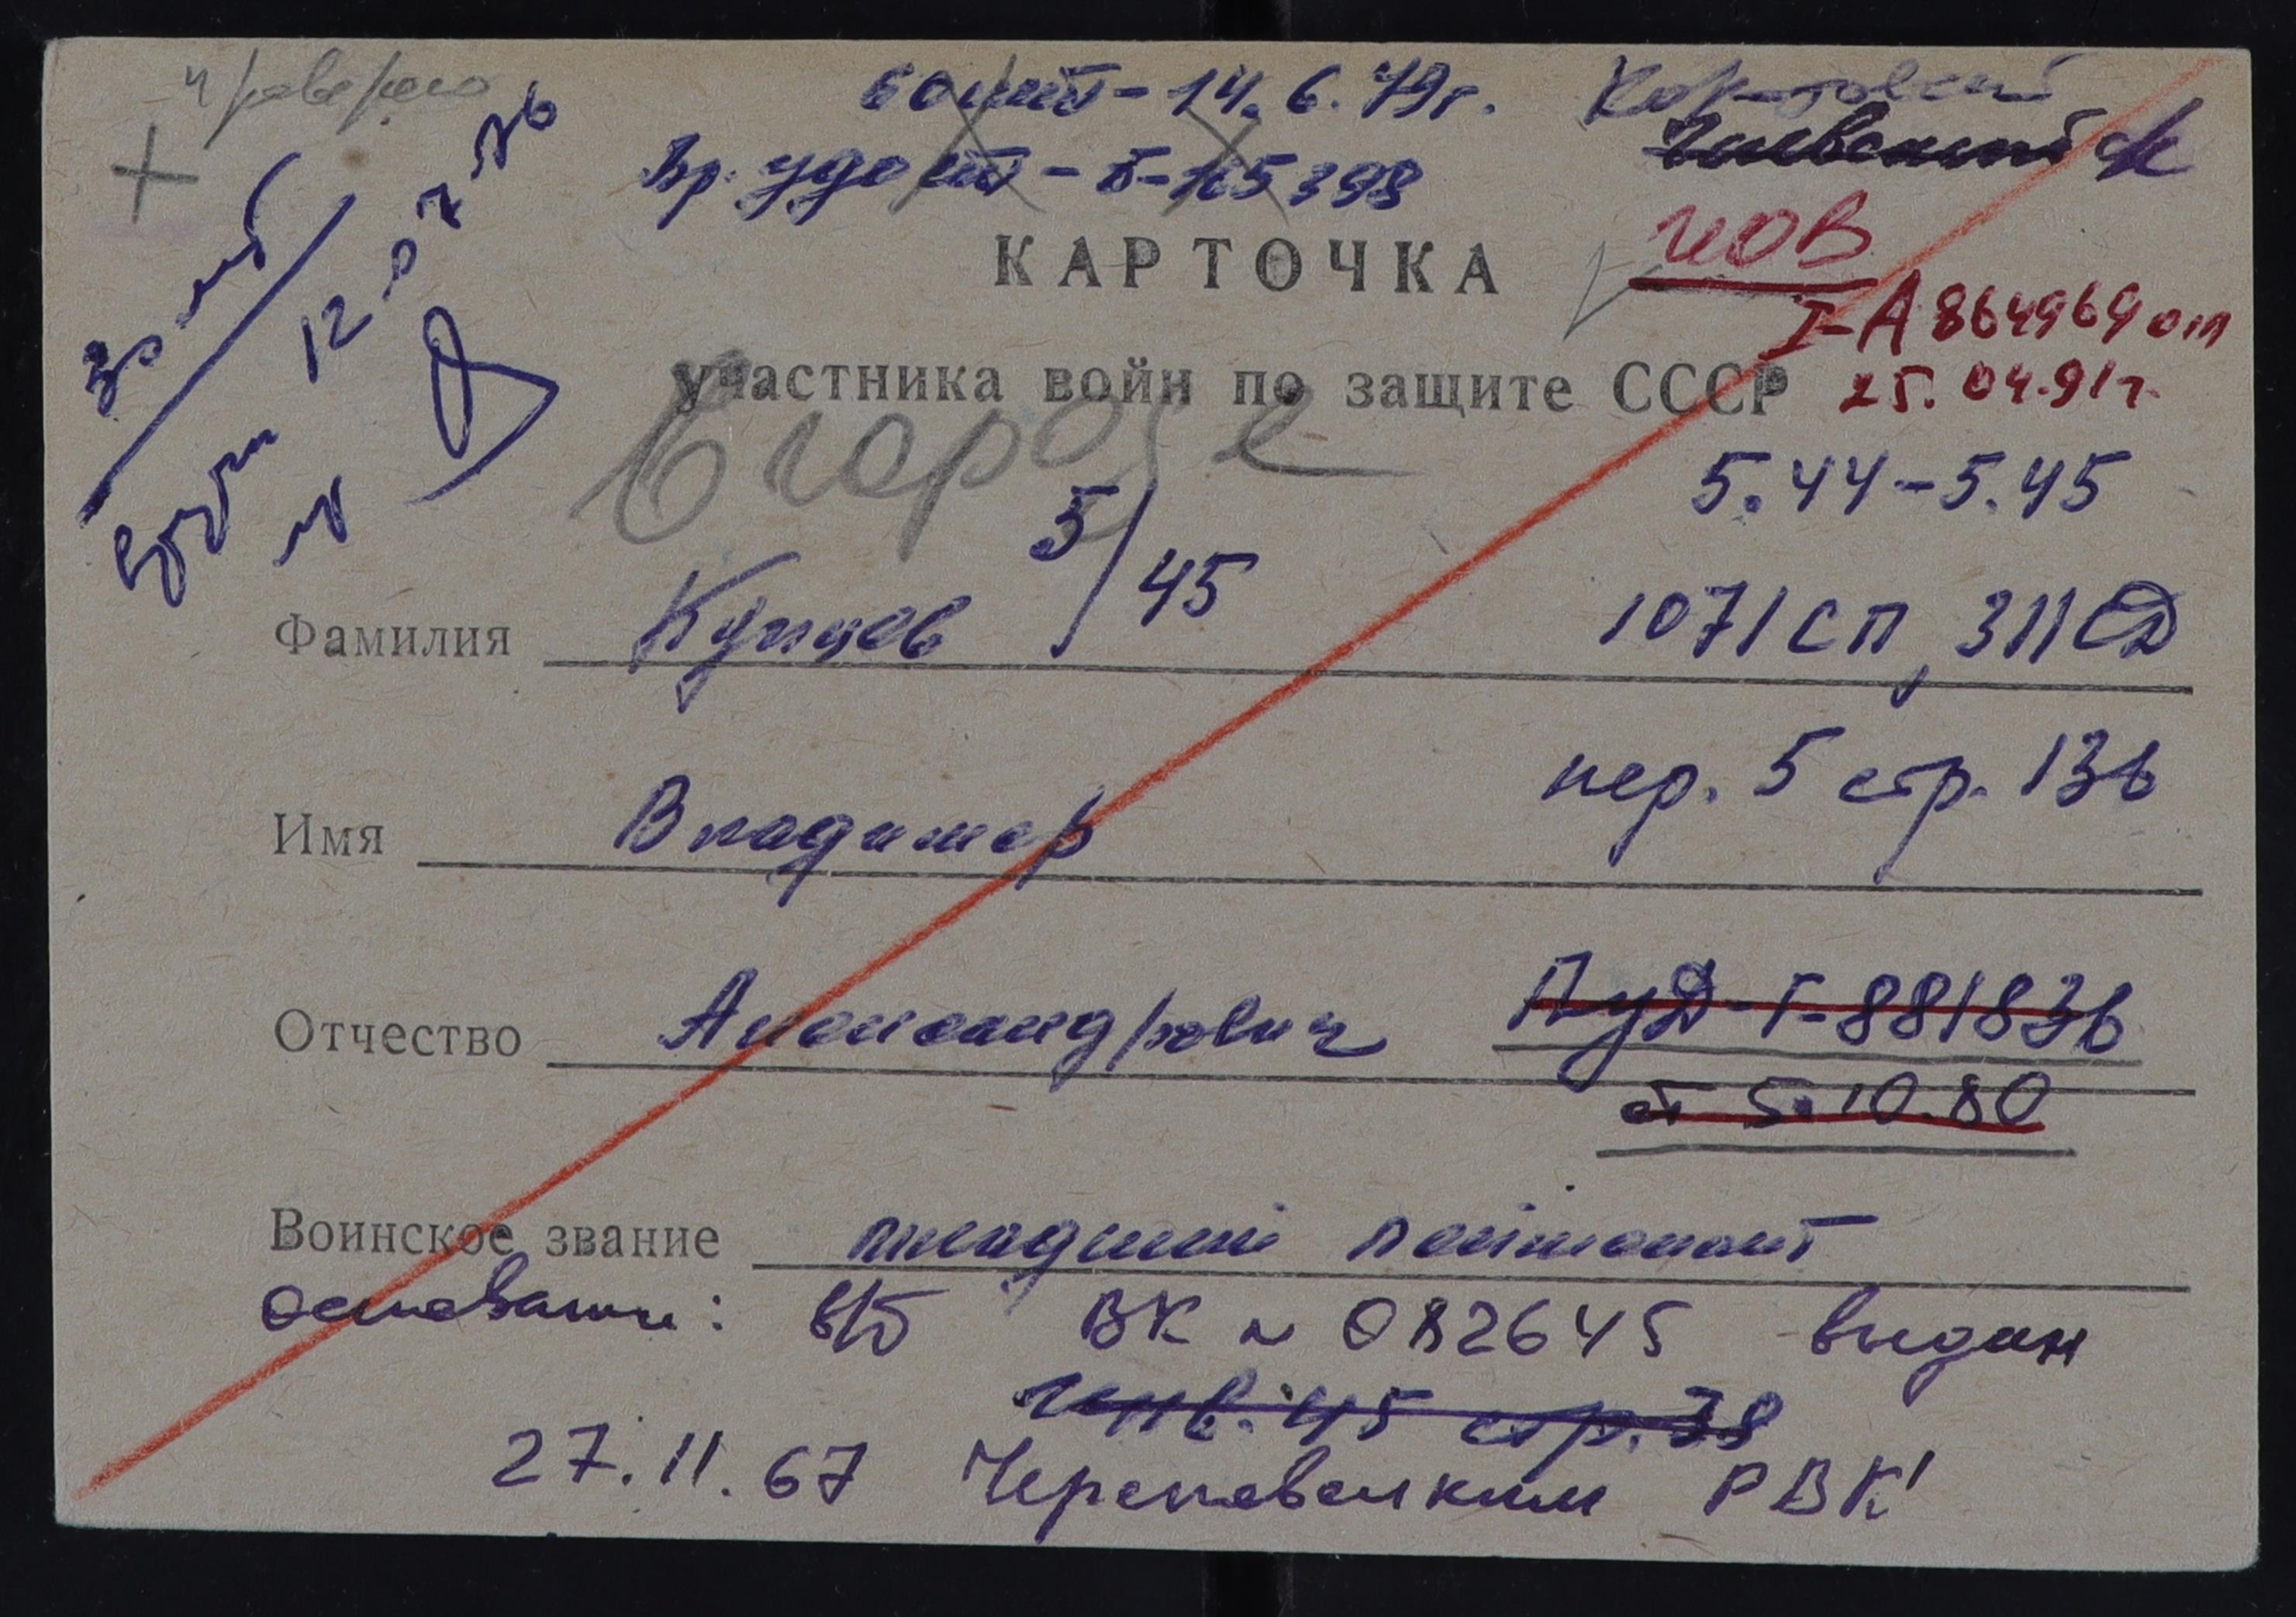 проверено
60 лет - 14.6.79г.
Вр. удо - Б-165398
КАРТОЧКА
ИОВ
I-А 864969 от
25.04.91г.
участника войн по защите СССР
В городе
30 лет
12.07.76
5.44-5.45
5/45
Фамилия Купцев
1071 СП, 311 СД
Имя Владимер
пер. 5 стр. 136
Отчество Александрович
ПуД-Г-881836
от 5.10.80
Воинское звание младший лейтенант
основание: в/б ВК № 082645 выдан
инв. 45 стр. 38
27.11.67 Череповецким РВК